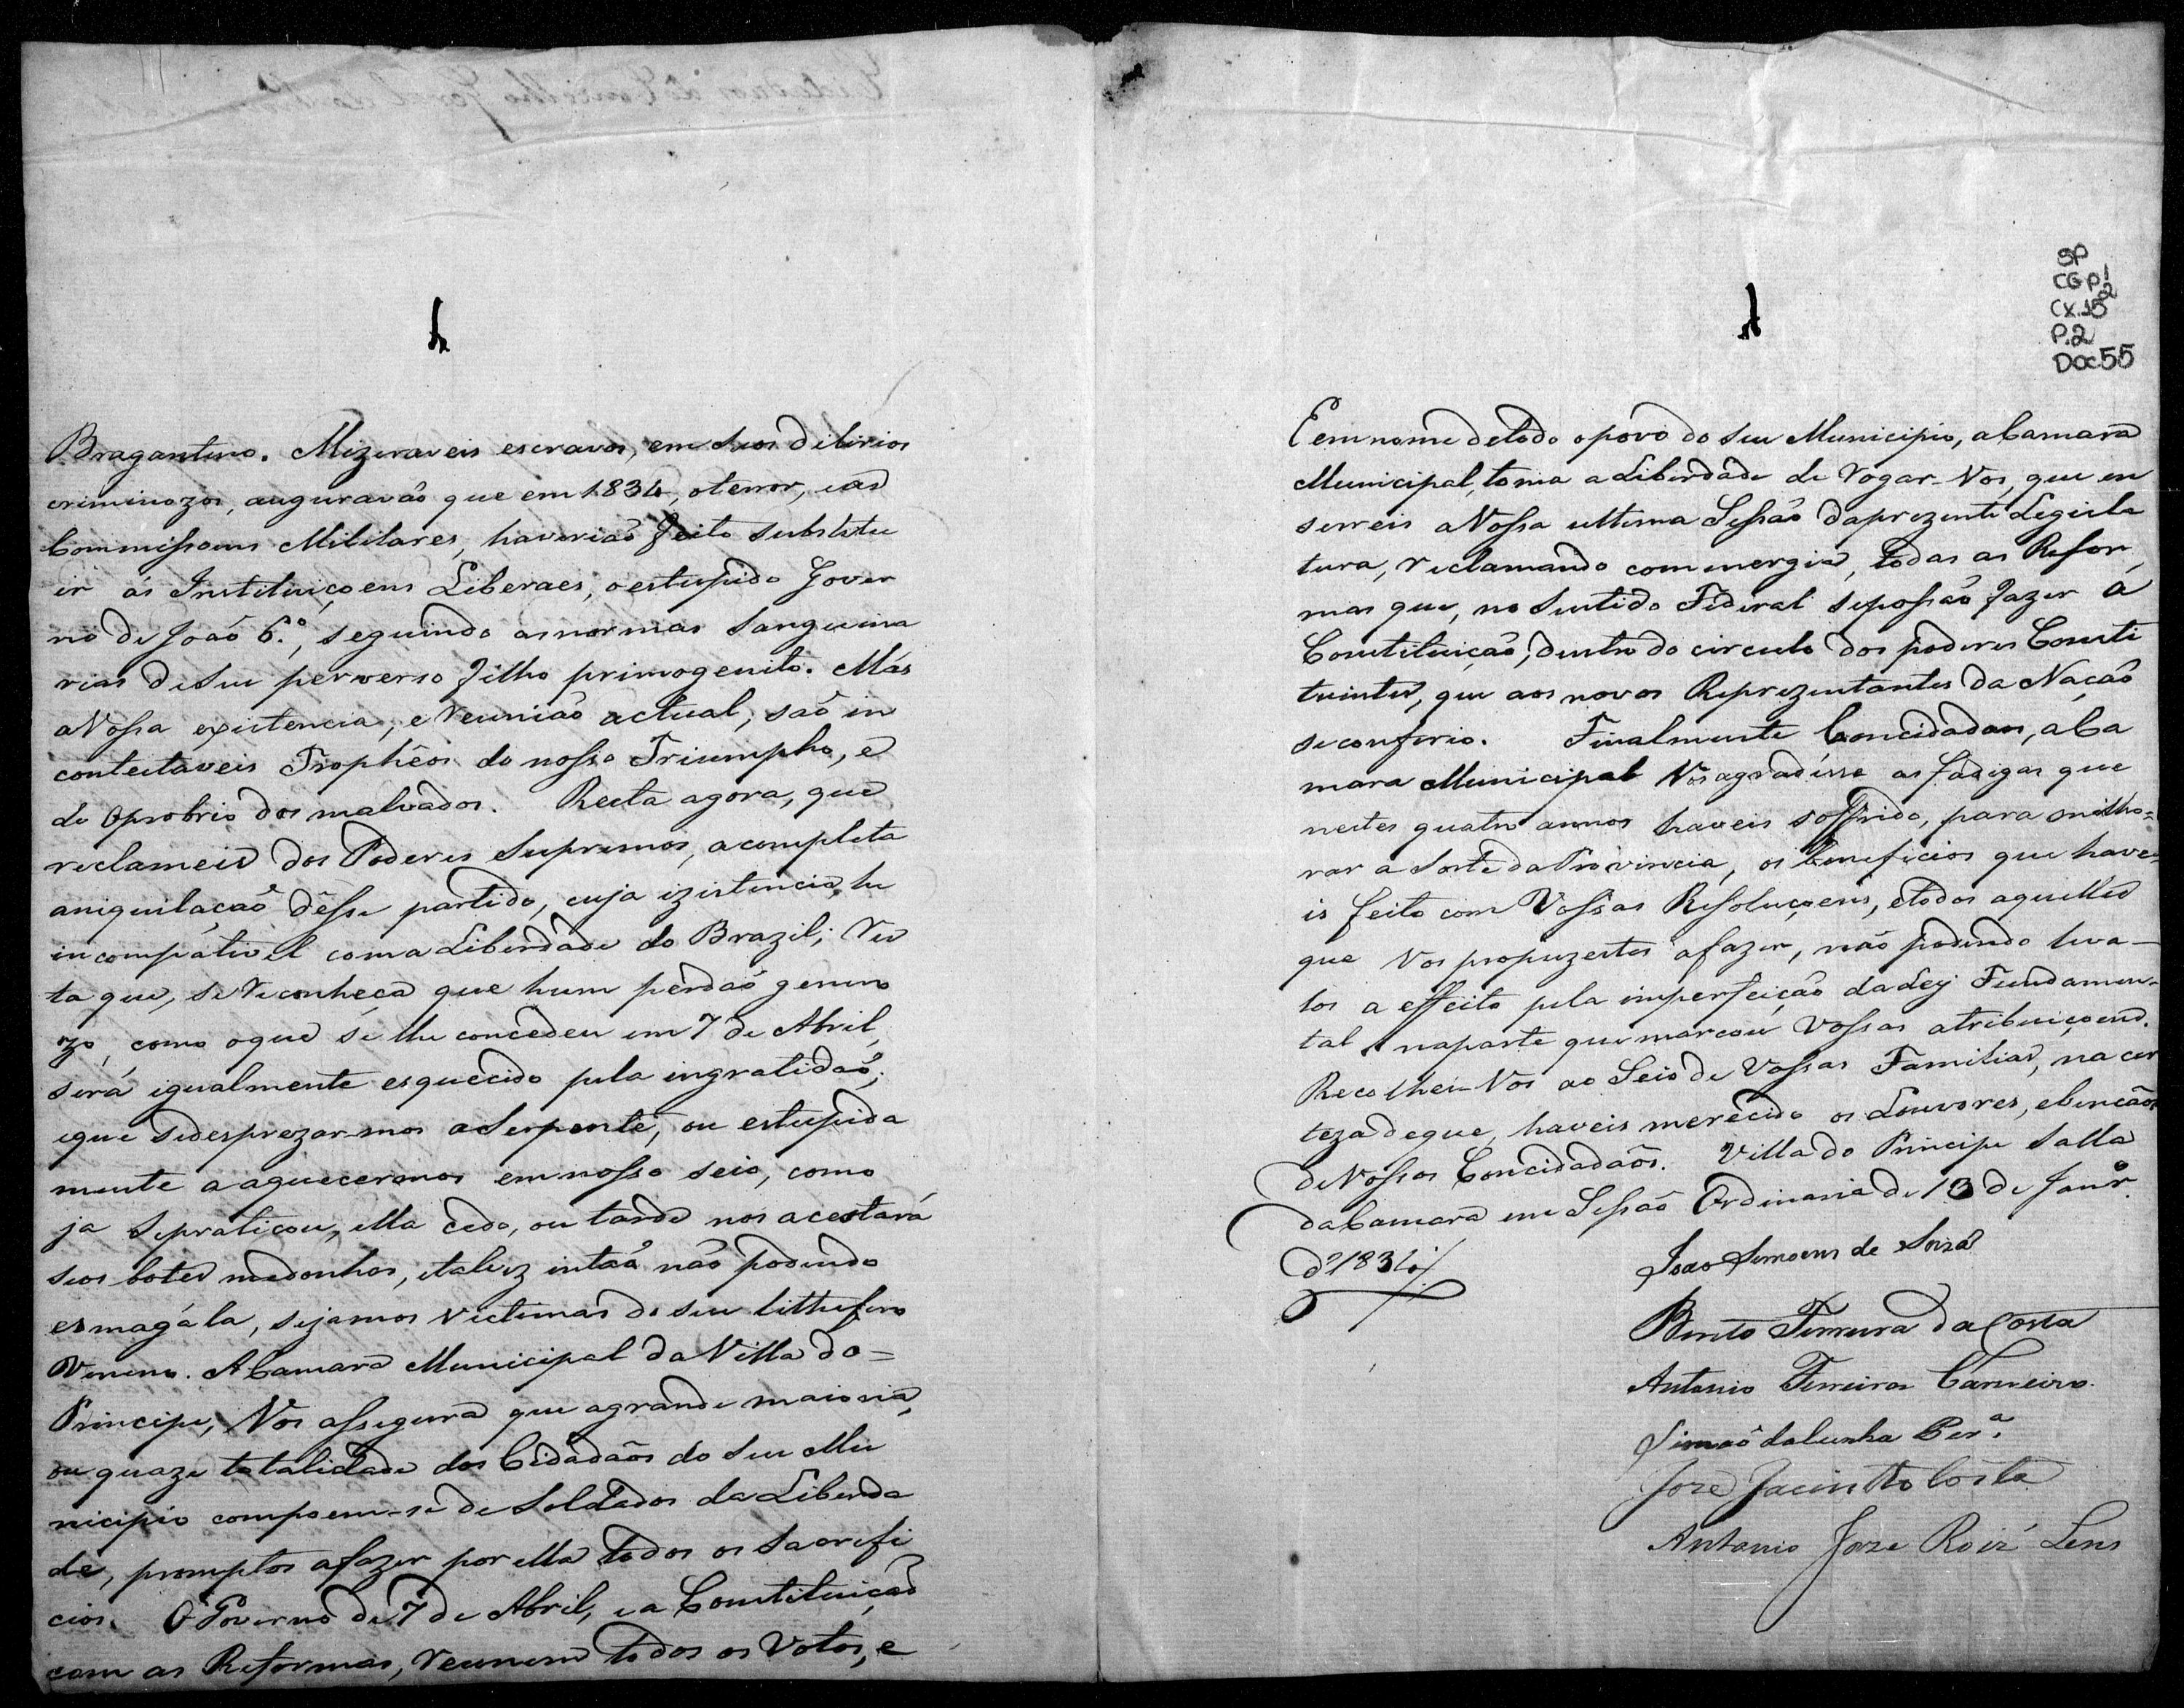 Bragantino. Mizeraveis escravos, em seos dilirios
criminozos, auguravaõ que em 1834, o terror, e as
Commissoens Militares, haveriaõ feito substitu
ir ás Instituiçoens Liberaes, o estupido Gover
no de Joaõ 6.º, seguindo as normas sanguina
rias de seu perverso filho primogenito. Más
a Vossa existencia, e reuniaõ actual, saõ in
contestaveis Trophêos do nosso Triumpho, e
do oprobrio dos malvados. Resta agora, que
reclameis dos Poderes Supremos, a completa
aniquilaçaõ dêsse partido, cuja izistencia, he
incompativel com a Liberdade do Brazil; Res
ta que, se reconheça que hum perdaõ genero
zo, como o que se lhe concedeu em 7 de Abril,
será igualmente esquecido pela ingratidaõ;
e que se desprezar-mos a Serpente, ou estupida
mente a aquecermos em nosso seio, como
ja se praticou, ella cedo, ou tarde nos acestará
seos botes medonhos, e talvez intaõ não podendo
esmagála, sejamos victimas do seu litthifero
Veneno. A Camara Municipal da Villa do=
Principe, Vos assegura que a grande maioria,
ou quaze totalidade dos Cidadaõs do seu Mu
nicipio compoem-se de Soldados da Liberda
de, promptos a fazer por ella todos os Sacrifi
cios. O Governo de 7 de Abril, e a Constituiçaõ
com as Reformas, reunem todos os Votos, e
SP
CGP.1
Cx.15
P.2
Doc.55
E em nome de todo o povo do seu Municipio, a Camara
Municipal, toma a Liberdade de rogar-Vos, que en
serreis a Vossa ultima Sessaõ da prezente Legisla
tura, reclamando com energia, todas as Refor
mas que, no sentido Federal se possaõ fazer á
Constituiçaõ, dentro do circulo dos poderes Consti
tuintes, que aos novos Reprezentantes da Naçaõ
se conferio. Finalmente Concidadaos, a Ca
mara Municipal Vos agradésse as fadigas que
nestes quatro annos haveis soffrido, para milho=
rar a Sorte da Provincia, os beneficios que have=
is feito com Vossas Resoluçoens, e todos aquelles
que Vos propuzestes a fazer, não podendo leva-
los a effeito pela imperfeiçaõ da Ley Fundamen-
tal na parte que marcou Vossas atribuiçoens.
Recolhei-Vos ao Seio de Vossas Familias, na cer
teza de que, haveis merecido os Louvores, e bençaõs
de Nossos Concidadaõs. Villa do Principe Salla
da Camara em Sessaõ Ordinaria de 13 de Janr.º
d'1834
Joao Simoens de Souza
Bento Ferreira da Costa
Antonio Ferreira Carneiro.
Simaõ da Cunha Per.ª
Joze Jacintto Costa
Antonio Joze Roiz' Lens